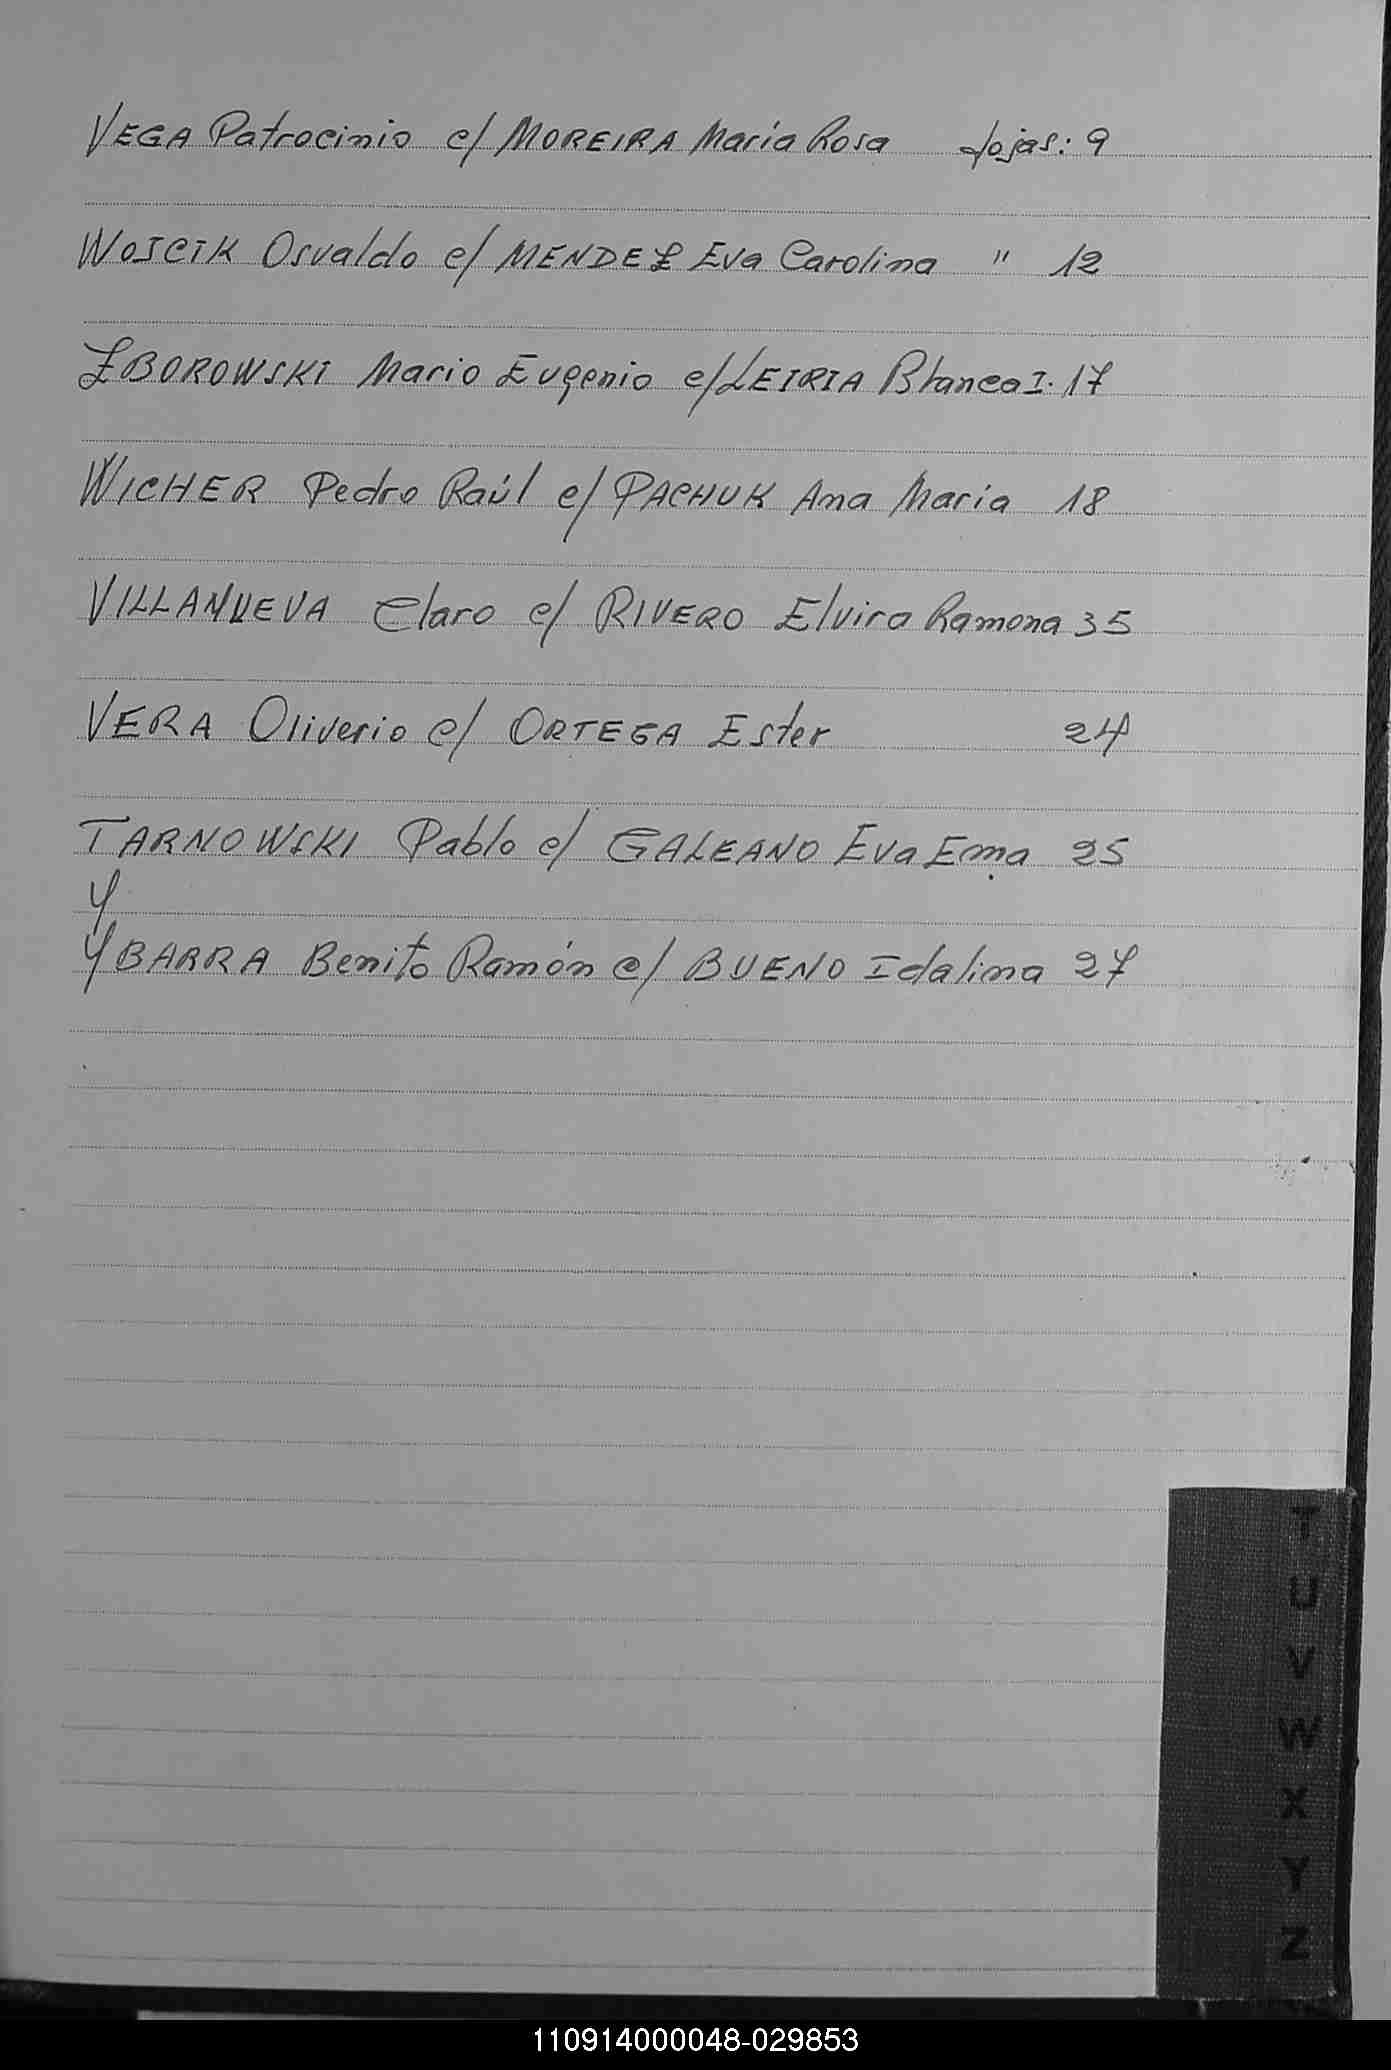 VEGA Patrocinio c/ MOREIRA María Rosa fojas: 9
WOJCIK Osvaldo c/ MENDEZ Eva Carolina " 12
ZBOROWSKI Mario Eugenio c/ LEIRIA Blanca I. 17
WICHER Pedro Raúl c/ PACHUK Ana María 18
VILLANUEVA Claro c/ RIVERO Elvira Ramona 35
VERA Oliverio c/ ORTEGA Ester 24
TARNOWSKI Pablo c/ GALEANO Eva Ema 25
Y
YBARRA Benito Ramón c/ BUENO Idalina 27
T
U
V
W
X
Y
Z
110914000048-029853